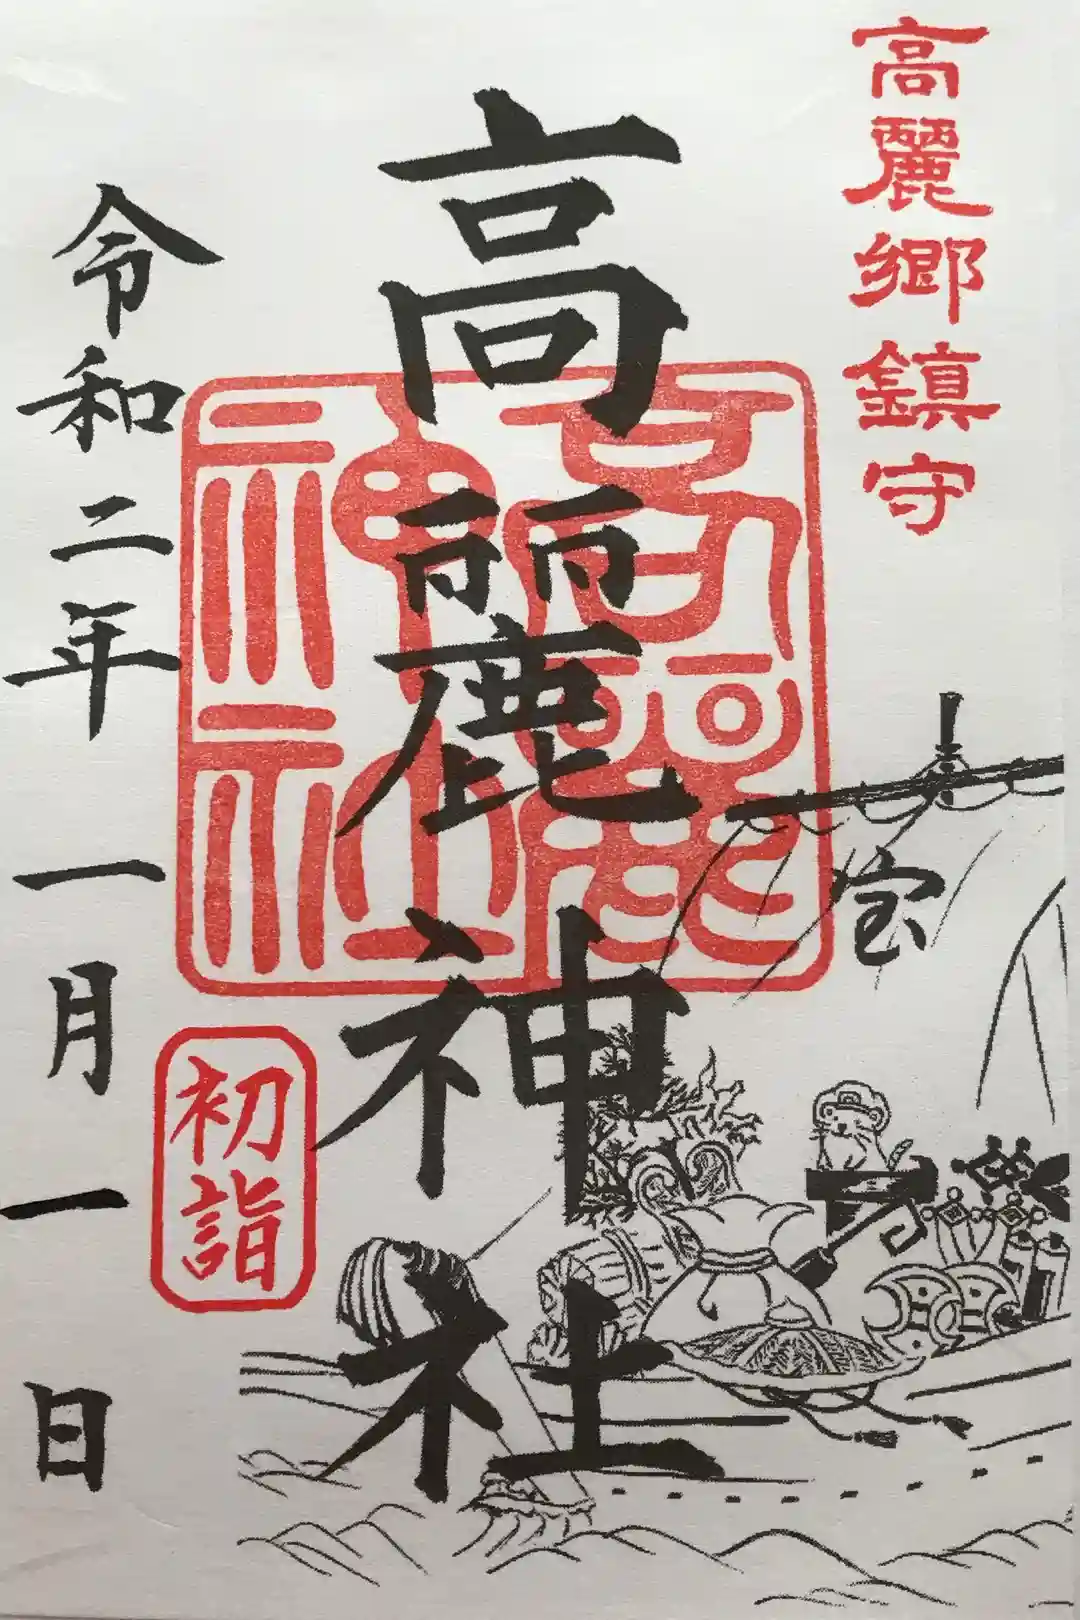 高麗郷鎮守
高麗神社
高麗
神社
宝
初詣
令和二年一月一日